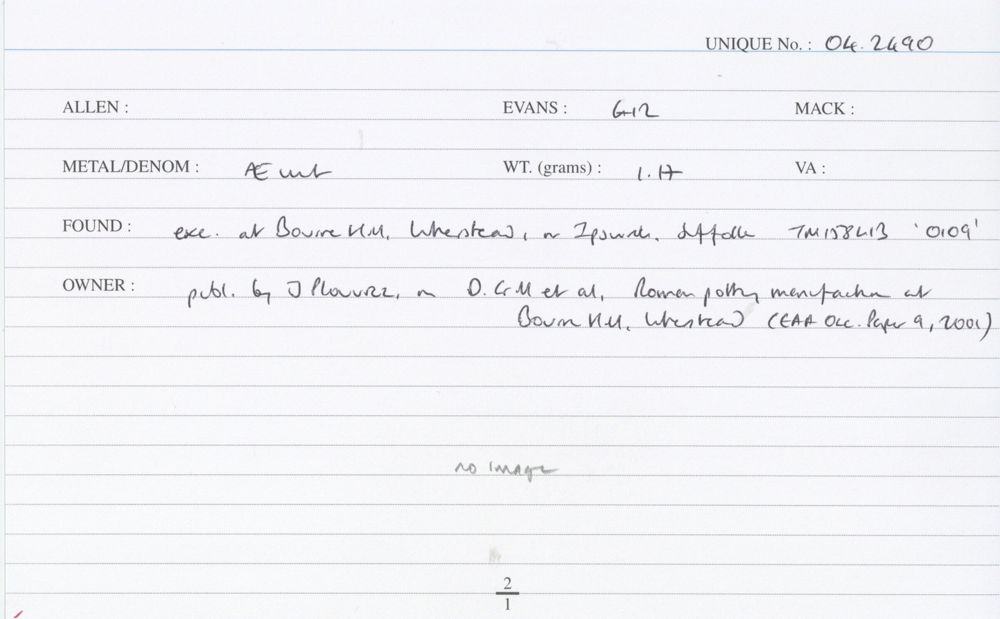 UNIQUE No. : 04.2490
ALLEN : EVANS : G-12 MACK :
METAL/DENOM : Æ unit WT. (grams) : 1.17 VA :
FOUND : exc. at Bourne Hill, Wherstead, nr Ipswich, Suffolk TM158413 '0109'
OWNER : publ. by J Plouviez, in D. Gill et al, Roman pottery manufacture at
Bourne Hill, Wherstead (EAA Occ. Paper 9, 2001)
no image
2
1